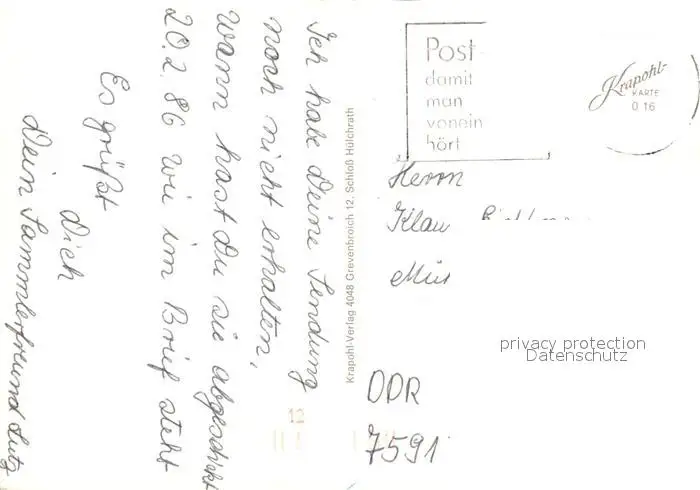 Ich habe Deine Sendung
noch nicht erhalten,
Wann hast Du sie abgeschickt
20.2.86 wie im Brief steht
Es grüßt
Dich
Dein Sammlerfreund Lutz
Krapohl-Verlag 4048 Grevenbroich 12, Schloß Hülchrath
Post
damit
man
vonein
hört
Krapohl-
KARTE
0 16
Herrn
Klau
DDR
7591
privacy protection
Datenschutz
12